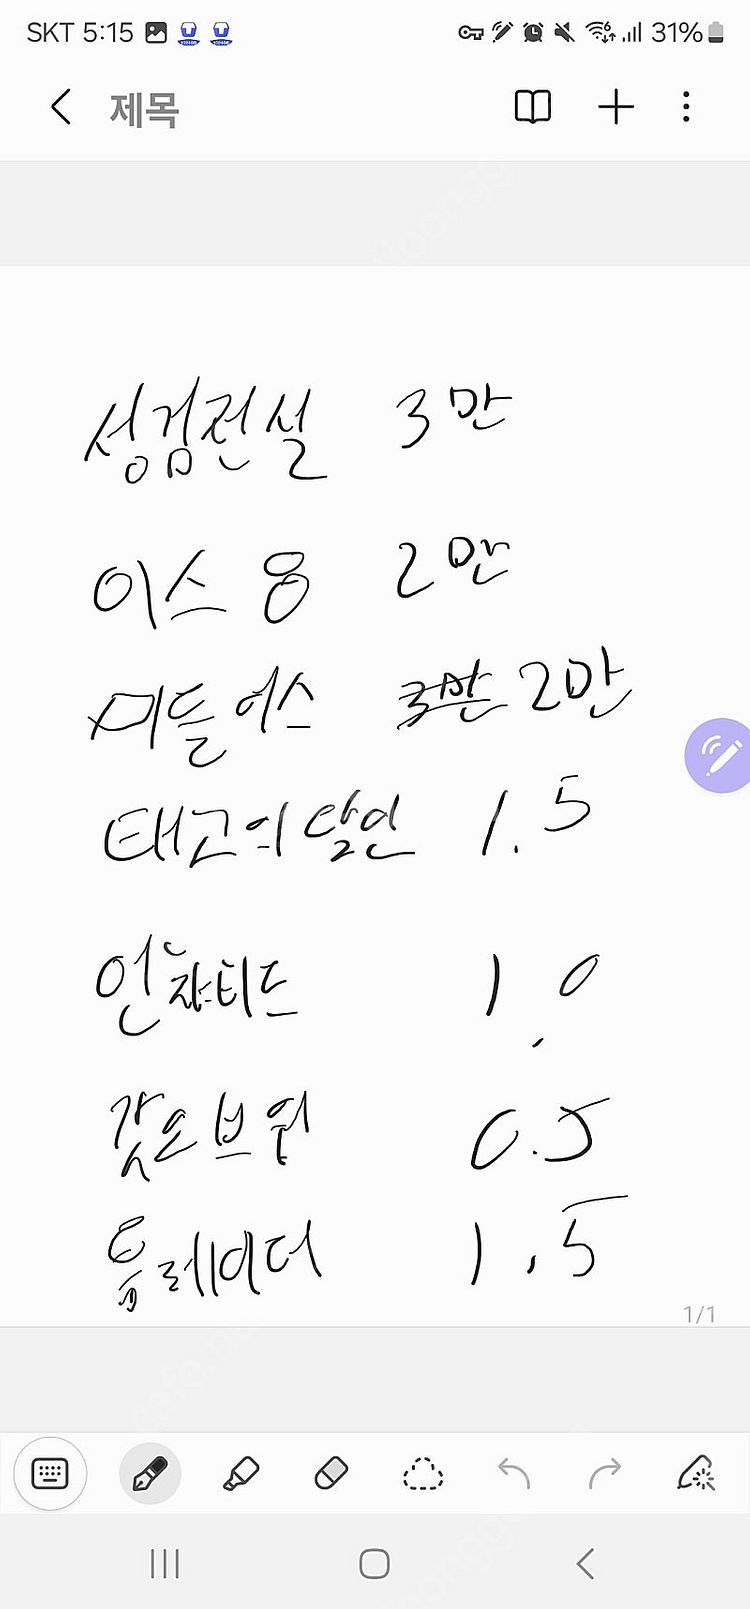 SKT 5:15 31%
제목
성검전설 3만
이스 8 2만
미들어스 3만 2만
태고의 달인 1.5
언챠티드 1.0
갓오브워 1 0.5
툼레이더 1.5
1/1